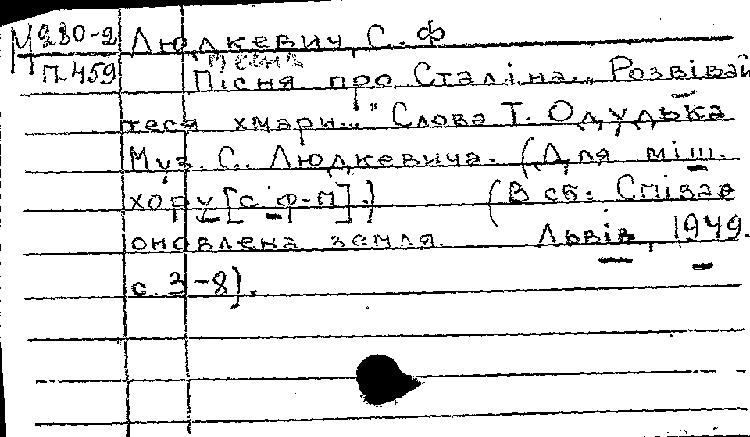 М280-2 Людкевич, С. Ф
П459 Пісня про Сталіна „Розвівай
теся хмари..." Слова Т. Одудька
Муз. С. Людкевича. (Для міш.
хору [с ф-п].) (В сб: Співає
оновлена земля Львів, 1949.
с. 3-8).